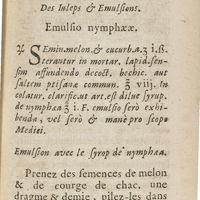 Des Iuleps & Emulsions.
Emulsio nymphææ.
♃ SEmin. melon. & cucurb. a. ʒ i. ß.
terantur in mortar. lapid. sen-
sim affundendo decoct. bechic. aut
saltem ptisanæ commun. ℥ viij. In
colatur. clarific. ut art. est dilue syrup.
de nymphæa ℥ i. F. emulsio serò exhi-
benda, vel serò & mane pro scopo
Medici.
Emulsion avec le syrop de nymphæa.
Prenez des semences de melon
& de courge de chac. une
dragme & demie, pilez-les dans